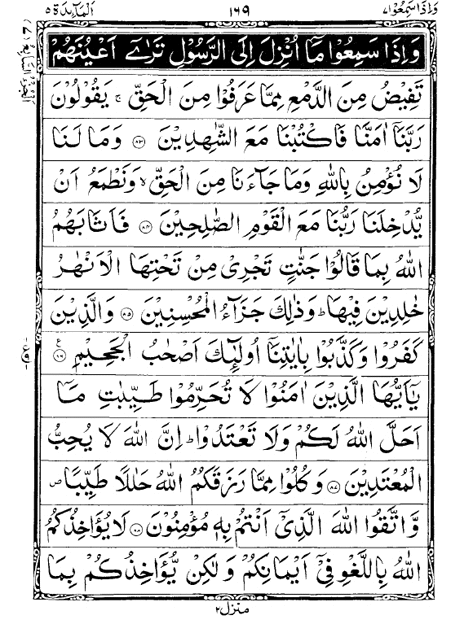 وَاِذَا سَمِعُوْا ٧
١٦٩
اَلْمَآئِدَة ٥
وَاِذَا سَمِعُوْا مَاۤ اُنْزِلَ اِلَى الرَّسُوْلِ تَرٰۤى اَعْيُنَهُمْ
تَفِيْضُ مِنَ الدَّمْعِ مِمَّا عَرَفُوْا مِنَ الْحَقِّ ۚ يَقُوْلُوْنَ
رَبَّنَاۤ اٰمَنَّا فَاكْتُبْنَا مَعَ الشّٰهِدِيْنَ ﴿٨٣﴾ وَمَا لَنَا
لَا نُؤْمِنُ بِاللّٰهِ وَمَا جَآءَنَا مِنَ الْحَقِّ ۙ وَنَطْمَعُ اَنْ
يُّدْخِلَنَا رَبُّنَا مَعَ الْقَوْمِ الصّٰلِحِيْنَ ﴿٨٤﴾ فَاَثَابَهُمُ
اللّٰهُ بِمَا قَالُوْا جَنّٰتٍ تَجْرِىْ مِنْ تَحْتِهَا الْاَنْهٰرُ
خٰلِدِيْنَ فِيْهَا ؕ وَذٰلِكَ جَزَآءُ الْمُحْسِنِيْنَ ﴿٨٥﴾ وَالَّذِيْنَ
كَفَرُوْا وَكَذَّبُوْا بِاٰيٰتِنَاۤ اُولٰٓئِكَ اَصْحٰبُ الْجَحِيْمِ ﴿٨٦﴾ ع
يٰۤاَيُّهَا الَّذِيْنَ اٰمَنُوْا لَا تُحَرِّمُوْا طَيِّبٰتِ مَاۤ
اَحَلَّ اللّٰهُ لَكُمْ وَلَا تَعْتَدُوْا ؕ اِنَّ اللّٰهَ لَا يُحِبُّ
الْمُعْتَدِيْنَ ﴿٨٧﴾ وَكُلُوْا مِمَّا رَزَقَكُمُ اللّٰهُ حَلٰلًا طَيِّبًا ص
وَّاتَّقُوا اللّٰهَ الَّذِىْۤ اَنْتُمْ بِهٖ مُؤْمِنُوْنَ ﴿٨٨﴾ لَا يُؤَاخِذُكُمُ
اللّٰهُ بِاللَّغْوِ فِىْۤ اَيْمَانِكُمْ وَلٰكِنْ يُّؤَاخِذُكُمْ بِمَا
منزل ٢